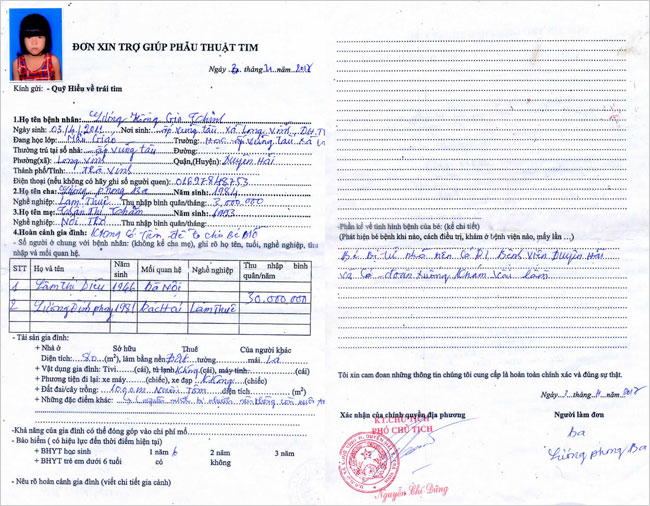 ĐƠN XIN TRỢ GIÚP PHẪU THUẬT TIM
Ngày tháng 11 năm
Kính gửi: - Quỹ Hiểu về trái tim
1.Họ tên bệnh nhân: Lương Hồng Gia Thịnh
Ngày sinh: 03/4/2011 Nơi sinh: ấp Vũng tàu xã Long Vĩnh, DH, T
Đang học lớp: Mẫu Giáo Trường: ấp Vũng tàu xã
Thường trú tại số nhà: ấp Vũng tàu Đường:
Phường(xã): Long Vĩnh Quận,(Huyện): Duyên Hải
Thành phố/Tỉnh: Trà Vinh
Điện thoại (nếu không có hãy ghi số người quen): 01697848753
2.Họ tên cha: Lương phong Ba Năm sinh: 1984
Nghề nghiệp: Làm Thuê Thu nhập bình quân/tháng: 3,000.000
3.Họ tên mẹ: Thị Năm sinh: 1993
Nghề nghiệp: Nội Trợ Thu nhập bình quân/tháng:
4.Hoàn cảnh gia đình: Không có Tiền để cho Bé
- Số người ở chung với bệnh nhân: (không kể cha mẹ), ghi rõ họ tên, tuổi, nghề nghiệp, thu
nhập và mối quan hệ.
STT Họ và tên Năm sinh Mối quan hệ Nghề nghiệp Thu nhập bình quân/năm
1 Lâm thị Diệu 1946 Bà Nội
30.000.000
2 Lương Đình phong 1981 Bác Hai Làm Thuê
- Tài sản gia đình:
+ Nhà ở Sở hữu Thuê Của người khác
Diện tích: 80 (m²), làm bằng nền Đất tường mái Lá
+ Vật dụng gia đình: Tivi (cái), tủ lạnh Không (cái), máy tính (cái)
+ Phương tiện đi lại: xe máy (chiếc), xe đạp Không (chiếc)
+ Đất đai/cây trồng: 1000m Nuôi Tôm diện tích (m²)
+ Những đặc điểm khác:
-Khả năng của gia đình có thể đóng góp vào chi phí mổ
- Bảo hiểm ( có hiệu lực đến thời điểm hiện tại)
+ BHYT học sinh 1 năm 2 năm 3 năm
+ BHYT trẻ em dưới 6 tuổi có không
- Nêu rõ hoàn cảnh gia đình (viết chi tiết gia cảnh)
-Phần kể về tình hình bệnh của bé: (kể chi tiết)
(Phát hiện bệnh khi nào, cách điều trị, khám ở bệnh viện nào, mấy lần …)
Bé Bị Từ nhỏ nên có Đi Bệnh Viện Duyên Hải
và có đoàn xuống khám vài lần
Tôi xin cam đoan những thông tin chúng tôi cung cấp là hoàn toàn chính xác và đúng sự thật.
Ngày tháng 11 năm
Xác nhận của chính quyền địa phương Người làm đơn
KT.CHỦ TỊCH
PHÓ CHỦ TỊCH
Ba
Lương phong Ba
Nguyễn Chí Dũng